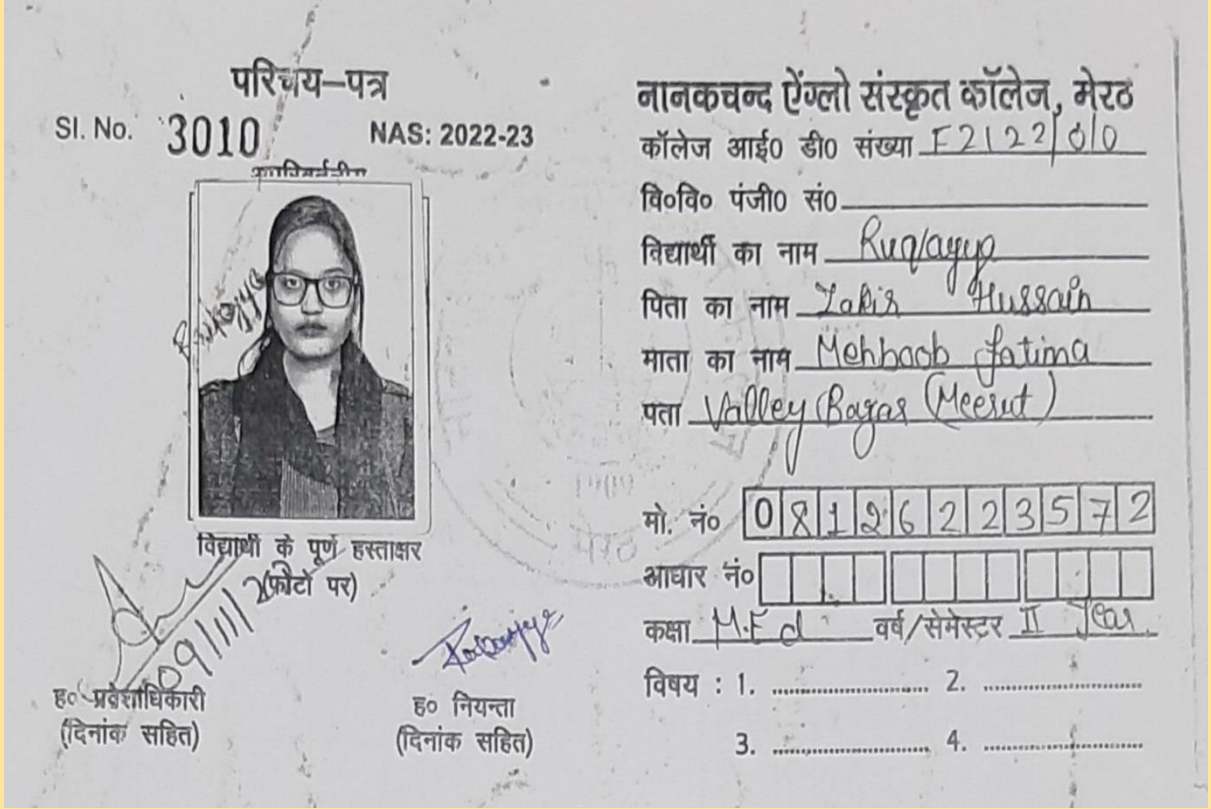 परिचय-पत्र
Sl. No. 3010 NAS: 2022-23
अपरिवर्तनीय
विद्यार्थी के पूर्ण हस्ताक्षर
(फोटो पर)
09/11/12
ह० प्रवेशाधिकारी
(दिनांक सहित)
ह० नियन्ता
(दिनांक सहित)
नानकचन्द ऐंग्लो संस्कृत कॉलेज, मेरठ
कॉलेज आई० डी० संख्या F2122/010
वि०वि० पंजी० सं०
विद्यार्थी का नाम Ruqayya
पिता का नाम Zakir Hussain
माता का नाम Mehboob fatima
पता Valley Bazar (Meerut)
मो. नं० 08126223572
आधार नं०
कक्षा M.Ed वर्ष/सेमेस्टर II Year
विषय : 1. 2.
3. 4.